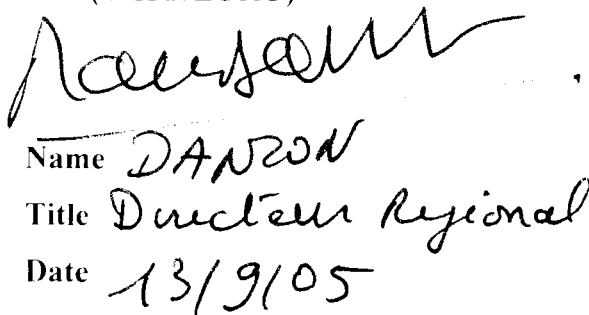 Name DANZON
Title Directeur Regional
Date 13/9/05